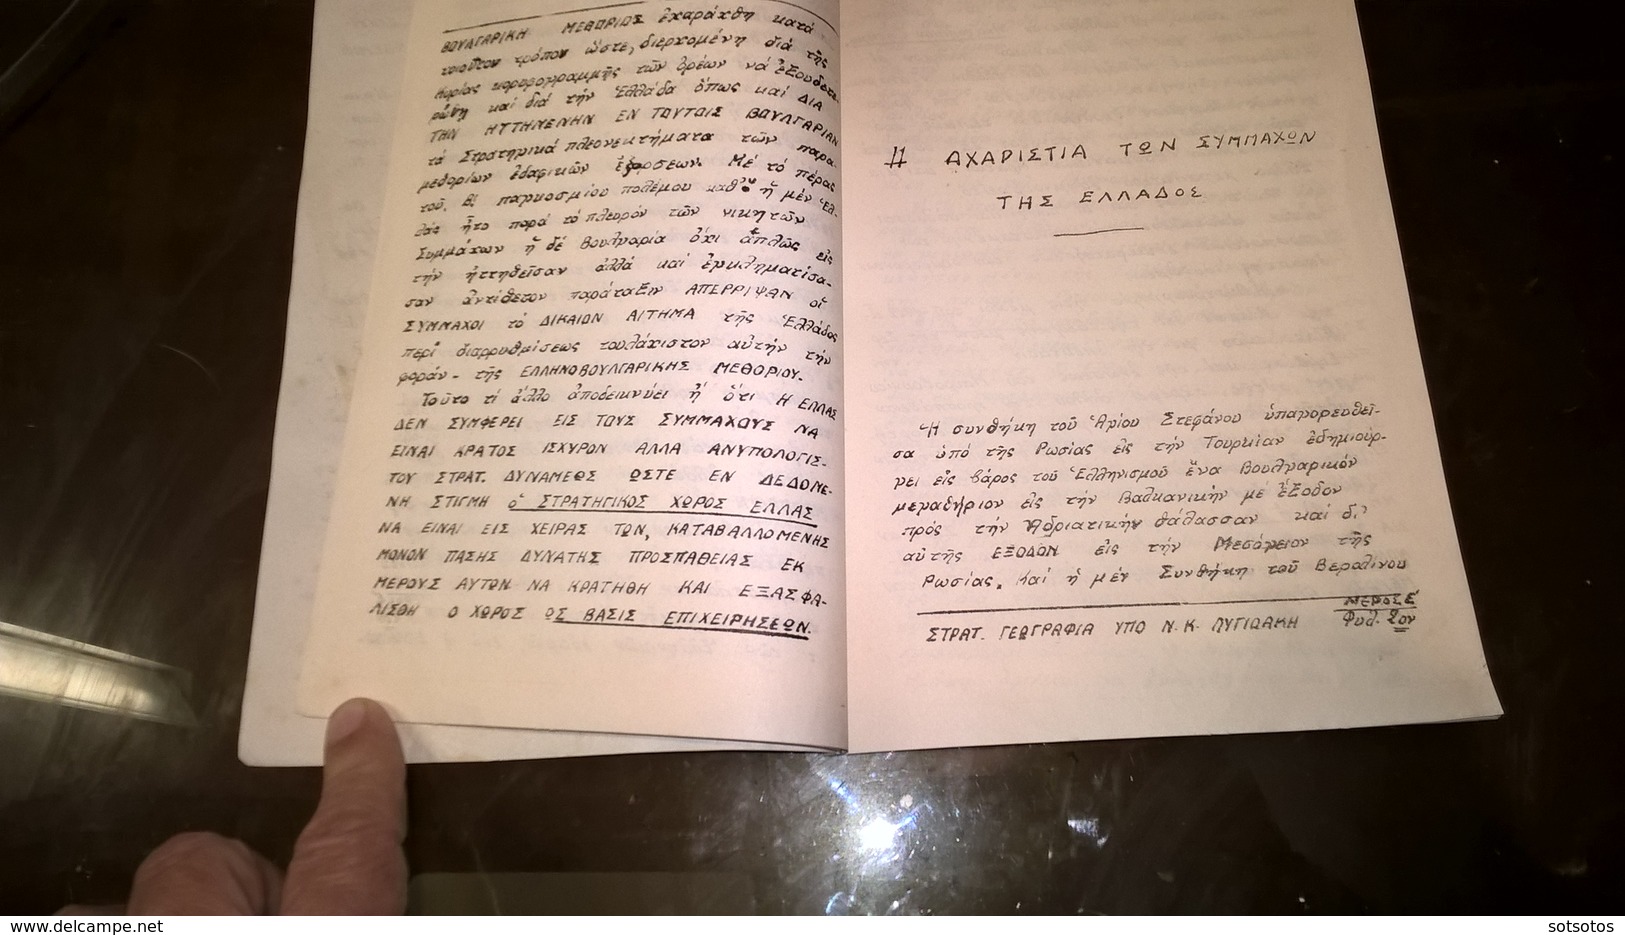 ΒΟΥΛΓΑΡΙΚΗ ΜΕΘΟΡΙΟΣ ἐχαράχθη κατά
τοιοῦτον τρόπον ὥστε, διερχομένη διά τῆς
κυρίας κορυφογραμμῆς τῶν ὀρέων νά ἐξουδετε-
ρώθη καί διά τήν Ἑλλάδα ὅπως καί ΔΙΑ
ΤΗΝ ΗΤΤΗΜΕΝΗΝ ΕΝ ΤΟΥΤΟΙΣ ΒΟΥΛΓΑΡΙΑΝ
τά Στρατηγικά πλεονεκτήματα τῶν παρα-
μεθορίων ἐδαφικῶν ἐξάρσεων. Μέ τό πέρας
τοῦ Β! παγκοσμίου πολέμου καθ' ὅν ἡ μέν Ἑλ-
λάς ἦτο παρά τό πλευρόν τῶν νικητῶν
Συμμάχων ἡ δέ Βουλγαρία ὄχι ἁπλῶς εἰς
τήν ἡττηθεῖσαν ἀλλά καί ἐγκληματίσα-
σαν ἀντίθετον παράταξιν ΑΠΕΡΡΙΨΑΝ οἱ
ΣΥΜΜΑΧΟΙ τό ΔΙΚΑΙΟΝ ΑΙΤΗΜΑ τῆς Ἑλλάδος
περί διαρρυθμίσεως τουλάχιστον αὐτήν τήν
φοράν - τῆς ΕΛΛΗΝΟΒΟΥΛΓΑΡΙΚΗΣ ΜΕΘΟΡΙΟΥ.
Τοῦτο τί ἄλλο ἀποδεικνύει ἤ ὅτι Η ΕΛΛΑΣ
ΔΕΝ ΣΥΜΦΕΡΕΙ ΕΙΣ ΤΟΥΣ ΣΥΜΜΑΧΟΥΣ ΝΑ
ΕΙΝΑΙ ΚΡΑΤΟΣ ΙΣΧΥΡΟΝ ΑΛΛΑ ΑΝΥΠΟΛΟΓΙΣ-
ΤΟΥ ΣΤΡΑΤ. ΔΥΝΑΜΕΩΣ ΩΣΤΕ ΕΝ ΔΕΔΟΜΕ-
ΝΗ ΣΤΙΓΜΗ ὁ ΣΤΡΑΤΗΓΙΚΟΣ ΧΩΡΟΣ ΕΛΛΑΣ
ΝΑ ΕΙΝΑΙ ΕΙΣ ΧΕΙΡΑΣ ΤΩΝ, ΚΑΤΑΒΑΛΛΟΜΕΝΗΣ
ΜΟΝΟΝ ΠΑΣΗΣ ΔΥΝΑΤΗΣ ΠΡΟΣΠΑΘΕΙΑΣ ΕΚ
ΜΕΡΟΥΣ ΑΥΤΩΝ ΝΑ ΚΡΑΤΗΘΗ ΚΑΙ ΕΞΑΣΦΑ-
ΛΙΣΘΗ Ο ΧΩΡΟΣ ΩΣ ΒΑΣΙΣ ΕΠΙΧΕΙΡΗΣΕΩΝ.
Η ΑΧΑΡΙΣΤΙΑ ΤΩΝ ΣΥΜΜΑΧΩΝ
ΤΗΣ ΕΛΛΑΔΟΣ
Ἡ συνθήκη τοῦ Ἁγίου Στεφάνου ὑπαγορευθεῖ-
σα ὑπό τῆς Ρωσίας εἰς τήν Τουρκίαν ἐδημιούρ-
γει εἰς βάρος τοῦ Ἑλληνισμοῦ ἕνα Βουλγαρικόν
μεγαθήριον εἰς τήν Βαλκανικήν μέ ἔξοδον
πρός τήν Ἀδριατικήν θάλασσαν καί δι'
αὐτῆς ΕΞΟΔΟΝ εἰς τήν Μεσόγειον τῆς
Ρωσίας. Καί ἡ μέν Συνθήκη τοῦ Βερολίνου
ΣΤΡΑΤ. ΓΕΩΓΡΑΦΙΑ ΥΠΟ Ν. Κ. ΛΥΓΙΔΑΚΗ
ΜΕΡΟΣ Ε'
Φυλ. 2ον
www.delcampe.net
sotsotos